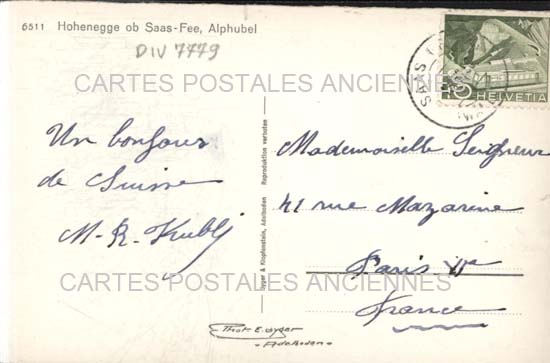 6511 Hohenegge ob Saas-Fee, Alphubel
DIV 7779
HELVETIA
SAAS
CARTES POSTALES ANCIENNES
Un bonjour
de Suisse
M. R. Kubli
Gyger & Klopfenstein, Adelboden
Reproduktion verboten
Mademoiselle Seigneur
41 rue Mazarine
Paris VIe
France
CARTES POSTALES ANCIENNES
Phot. E. Gyger
Adelboden